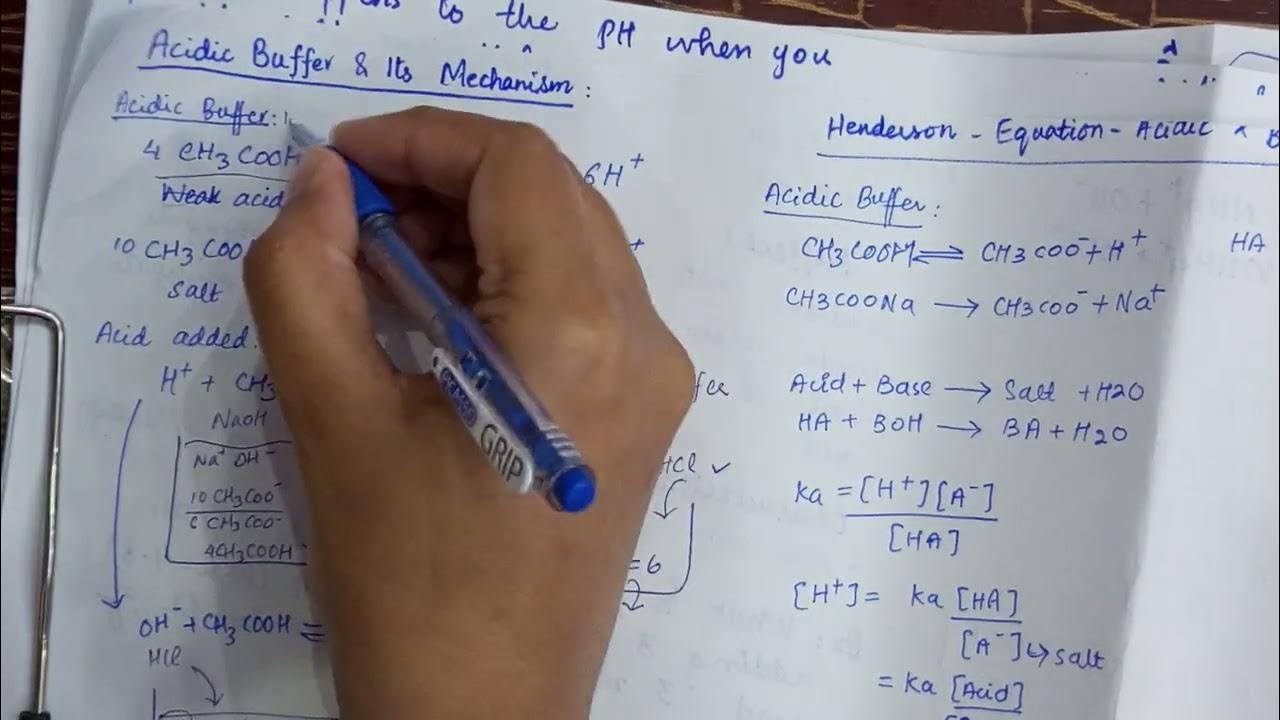 to the PH when you
Acidic Buffer & Its Mechanism:
Acidic Buffer:
4 CH3COOH
Weak acid
6H+
10 CH3COO
Salt
Acid added.
H+ + CH3
NaOH
Na+ OH-
10 CH3COO-
6 CH3COO-
4CH3COOH
HCl ✓
=6
OH- + CH3COOH ⇌
HCl
GRIP
Henderson - Equation - Acidic &
Acidic Buffer:
CH3COOH ⇌ CH3COO- + H+
HA
CH3COONa → CH3COO- + Na+
Acid + Base → Salt + H2O
HA + BOH → BA + H2O
Ka = [H+][A-]
[HA]
[H+] = Ka [HA]
[A-] ↳ Salt
= Ka [Acid]